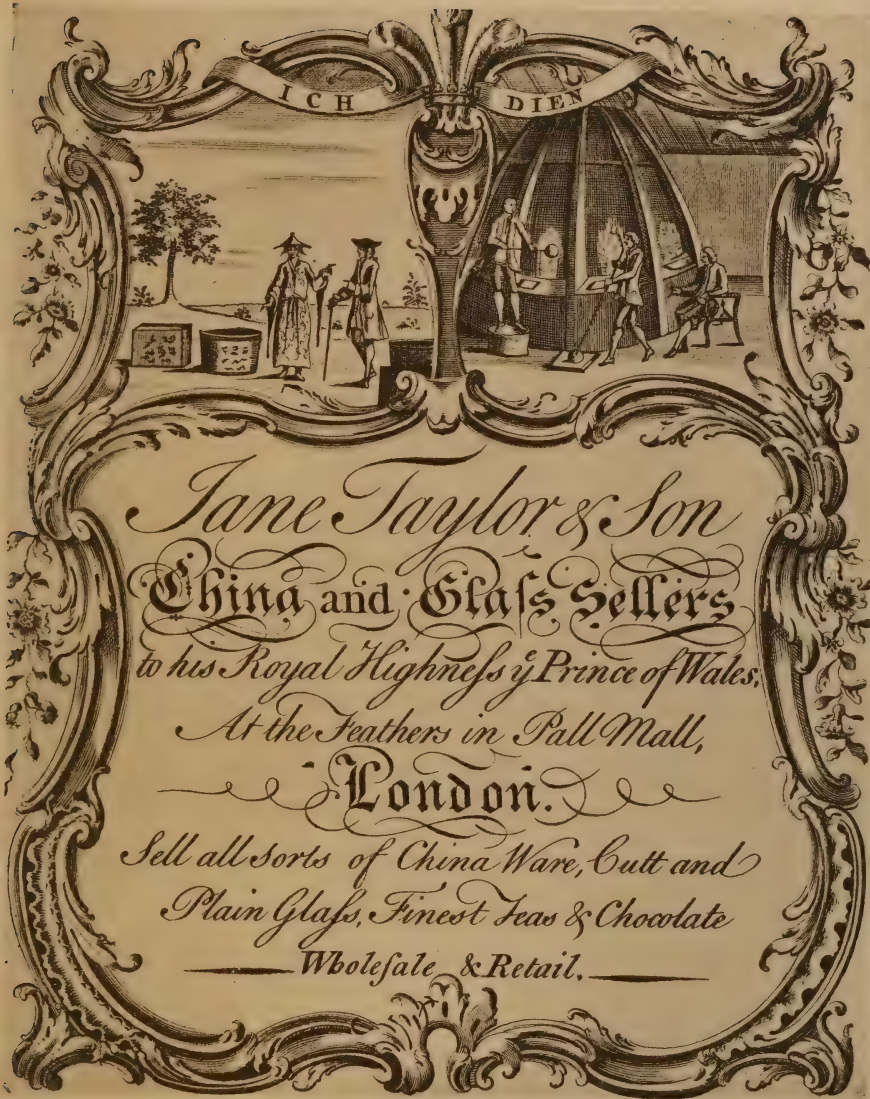 ICH DIEN
Jane Taylor & Son
China and Glaſs Sellers
to his Royal Highneſs yͤ Prince of Wales;
At the Feathers in Pall Mall,
London.
Sell all sorts of China Ware, Cutt and
Plain Glaſs, Finest Teas & Chocolate
Wholeſale & Retail.